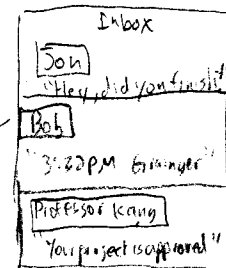 Inbox
Jon
"Hey, did you finish"
Bob
"3:22PM Grainger"
Professor Kang
"Your project is approved"